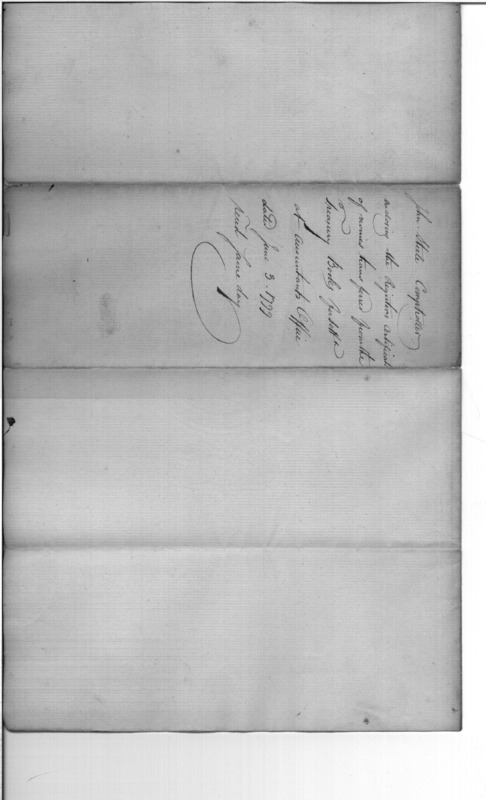 John Stele Comptroller
endorsing the Registers certificate
of monies transfered from the
Treasury Books
at Accountants Office
dated June 3. 1799
recd same day